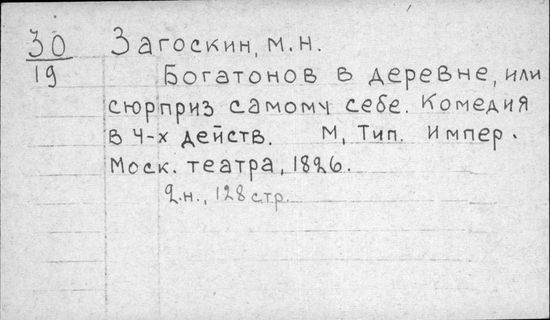 30 Загоскин, М.Н.
19 Богатонов в деревне, или
сюрприз самому себе. Комедия
в 4-х действ. М, Тип. Импер.
Моск. театра, 1826.
2.н., 128 стр.